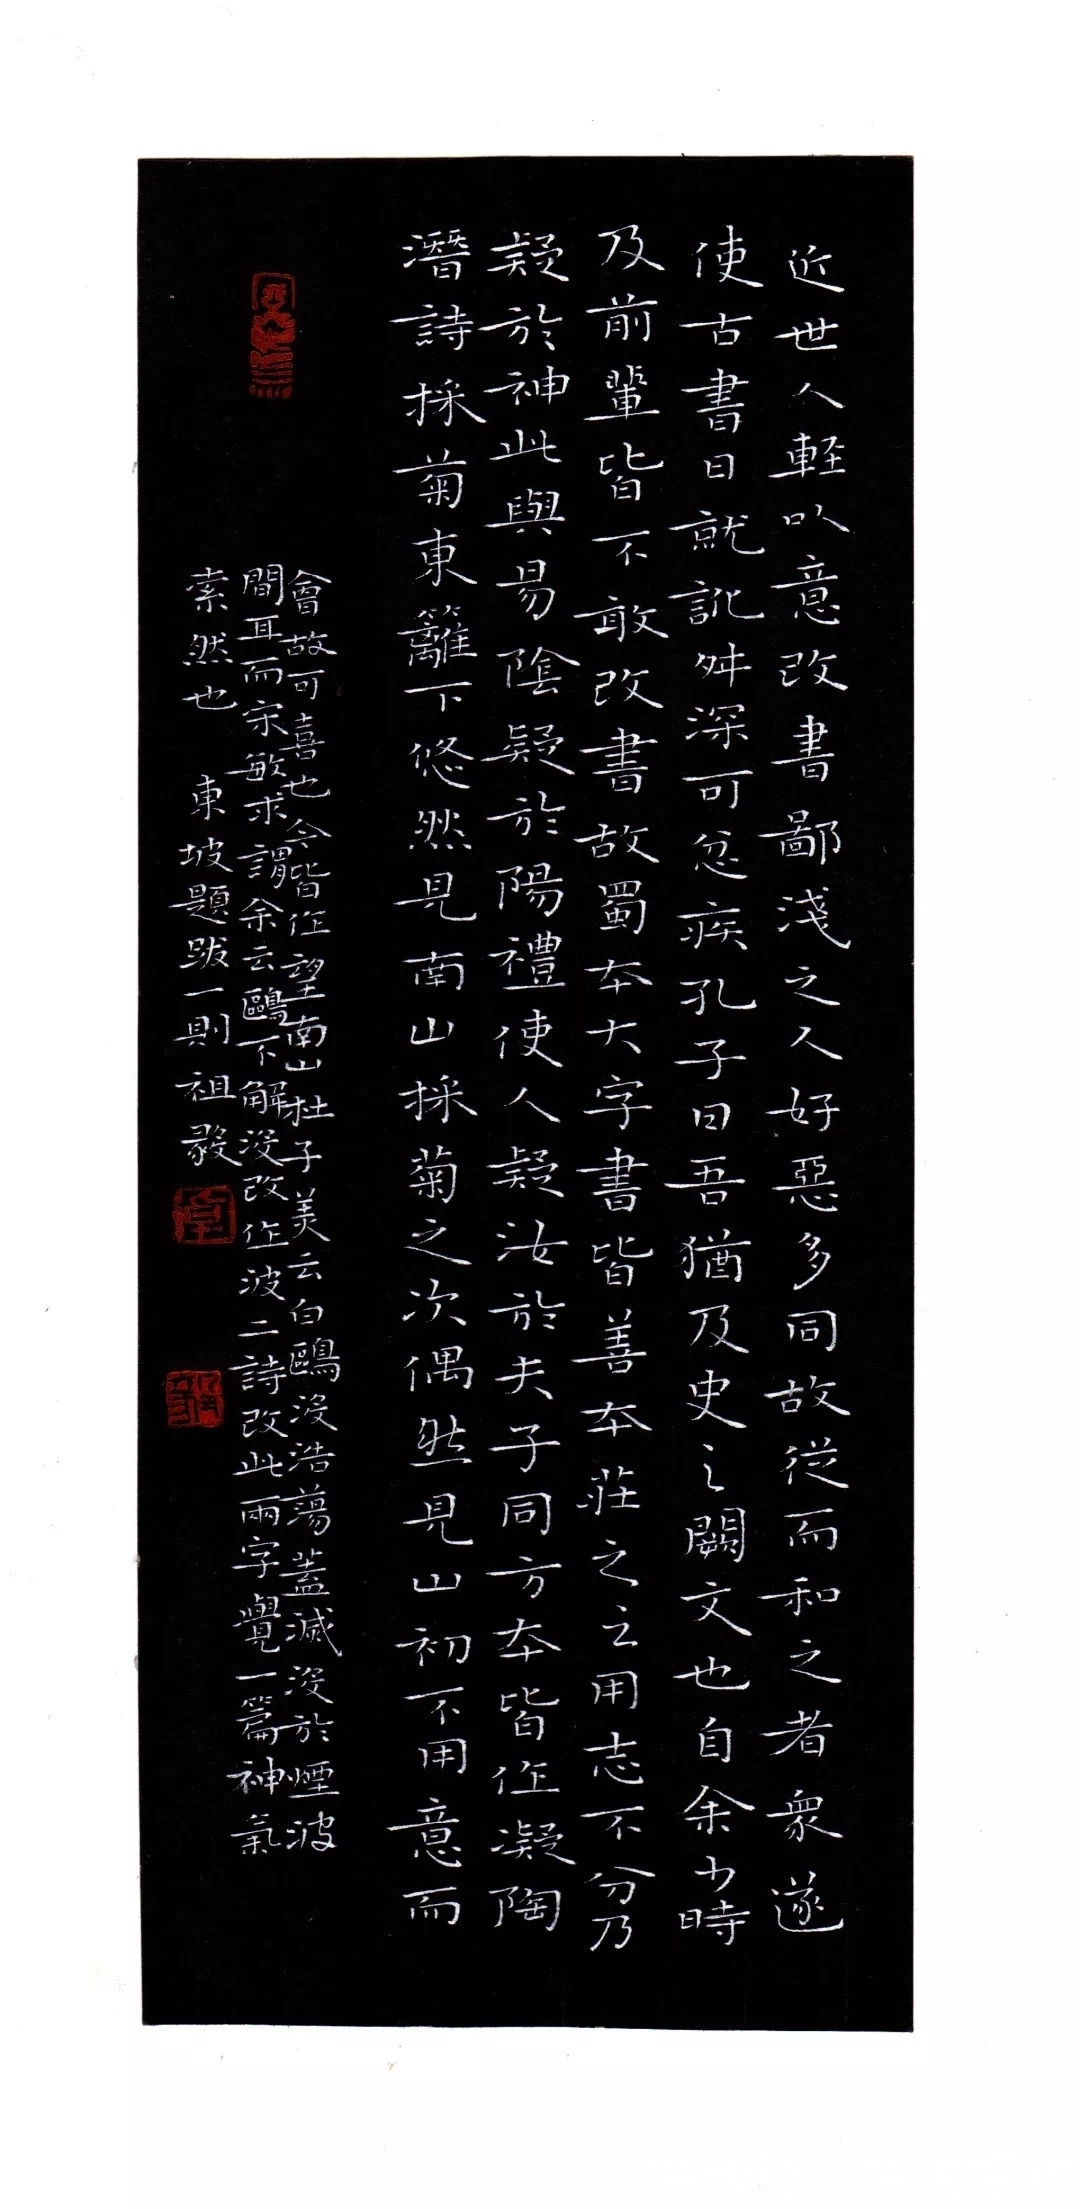 近世人輕以意改書鄙淺之人好惡多同故從而和之者衆遂
使古書日就訛舛深可忿疾孔子曰吾猶及史之闕文也自余少時
及前輩皆不敢改書故蜀本大字書皆善本莊之云用志不分乃
疑於神此與易陰疑於陽禮使人疑汝於夫子同方本皆作凝陶
潛詩採菊東籬下悠然見南山採菊之次偶然見山初不用意而
會故可喜也今皆作望南山杜子美云白鷗没浩蕩蓋滅没於煙波
間耳而宋敏求謂余云鷗下解没改作波二詩改此兩字覺一篇神氣
索然也 東坡題跋一則祖毅